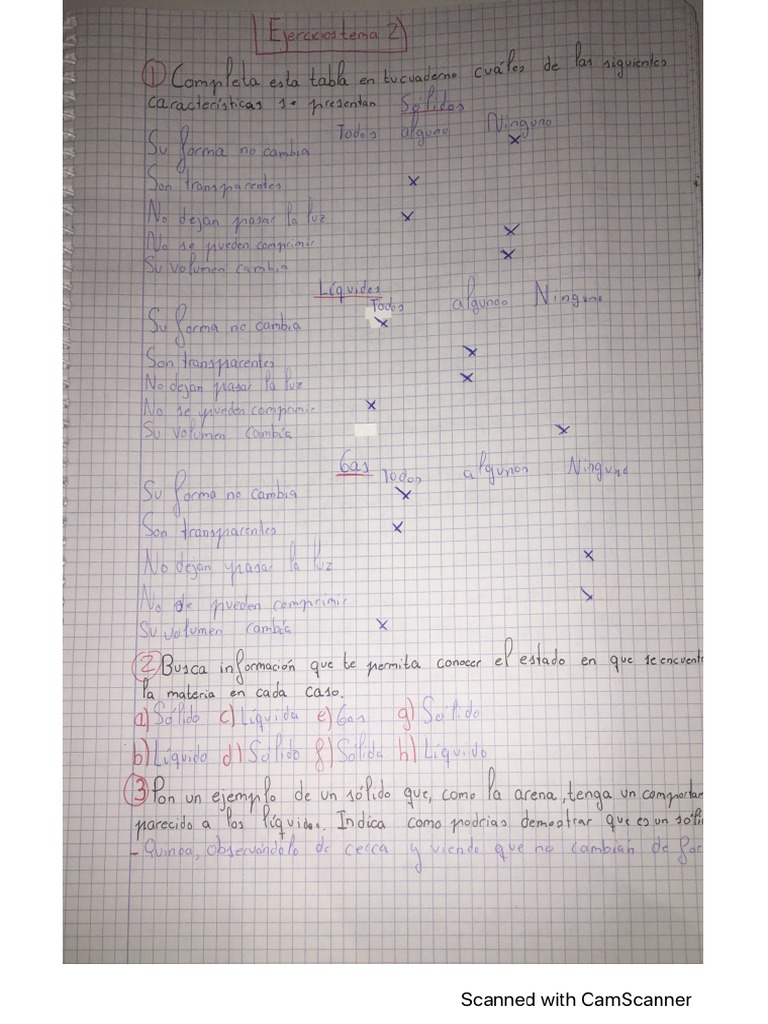 Ejercicios tema 2
① Completa esta tabla en tu cuaderno cuáles de las siguientes
características se presentan Sólidos
Todos alguno Ninguno
Su forma no cambia x
Son transparentes x
No dejan pasar la luz x
No se pueden comprimir x
Su volumen cambia x
Líquidos
Todos algundo Ninguno
Su forma no cambia x
Son transparentes x
No dejan pasar la luz x
No se pueden comprimir x
Su volumen cambia x
Gas Todos algunos Ninguno
Su forma no cambia x
Son transparentes x
No dejan pasar la luz x
No de pueden comprimir x
Su volumen cambia x
② Busca información que te permita conocer el estado en que se encuent
la materia en cada caso.
a) Sólido c) Líquida e) Gas g) Sólido
b) Líquido d) Sólido f) Sólida h) Líquido
③ Pon un ejemplo de un sólido que, como la arena, tenga un comportam
parecido a los líquidos. Indica como podrias demostrar que es un sóli
- Quinoa, observándolo de cerca y viendo que no cambian de for
Scanned with CamScanner